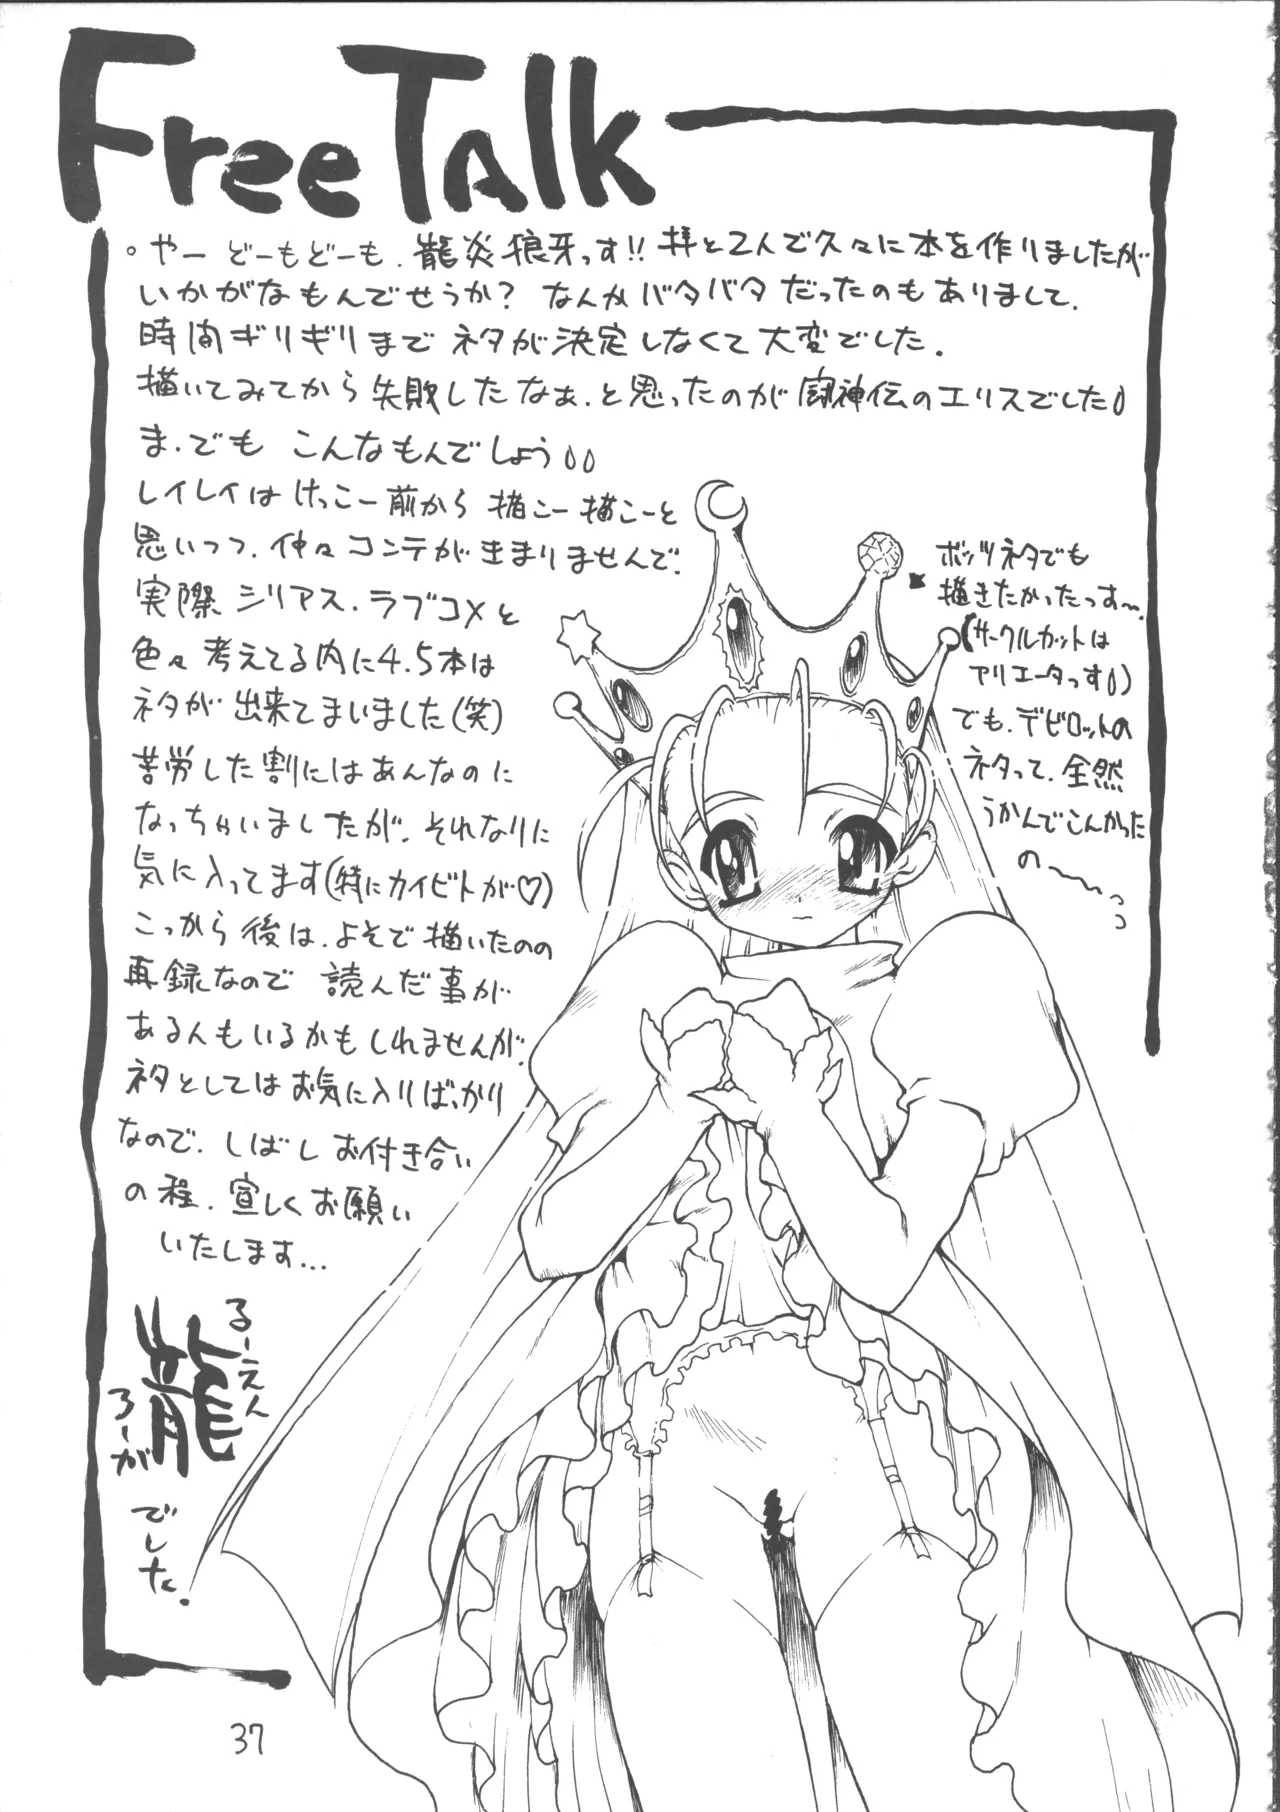 Free Talk
。やー どーもどーも、龍炎狼牙っす!! 拝と2人で久々に本を作りましたが
いかがなもんでせうか? なんかバタバタだったのもありまして、
時間ギリギリまで ネタが決定しなくて大変でした。
描いてみてから失敗したなぁ、と思ったのが闘神伝のエリスでした
ま、でも こんなもんでしょう
レイレイは けっこー前から 描こー描こーと
思いつつ、仲々コンテがきまりませんで、
実際シリアス、ラブコメと
色々考えてる内に4、5本は
ネタが出来てまいました(笑)
苦労した割にはあんなのに
なっちゃいましたが、それなりに
気に入ってます(特にカイビトが♡)
こっから後は、よそで描いたのの
再録なので 読んだ事が
あるんもいるかもしれませんが、
ネタとしてはお気に入りばっかり
なので、しばしお付き合い
の程、宜しくお願い
いたします...
るーえん
龍
ろーが
でした。
ボッツネタでも
描きたかったっす〜、
(サークルカットは
アリエータっす)
でも、デビロットの
ネタって、全然
うかんでこんかった
の〜っっ
37